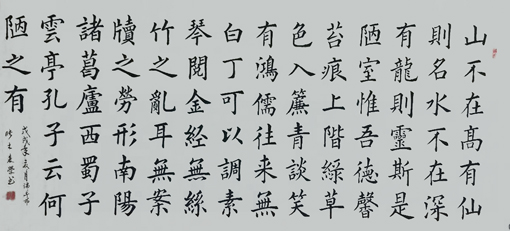 山不在高有仙
則名水不在深
有龍則靈斯是
陋室惟吾德馨
苔痕上階綠草
色入簾青談笑
有鴻儒往來無
白丁可以調素
琴閱金經無絲
竹之亂耳無案
牘之勞形南陽
諸葛廬西蜀子
雲亭孔子云何
陋之有
戊戌年